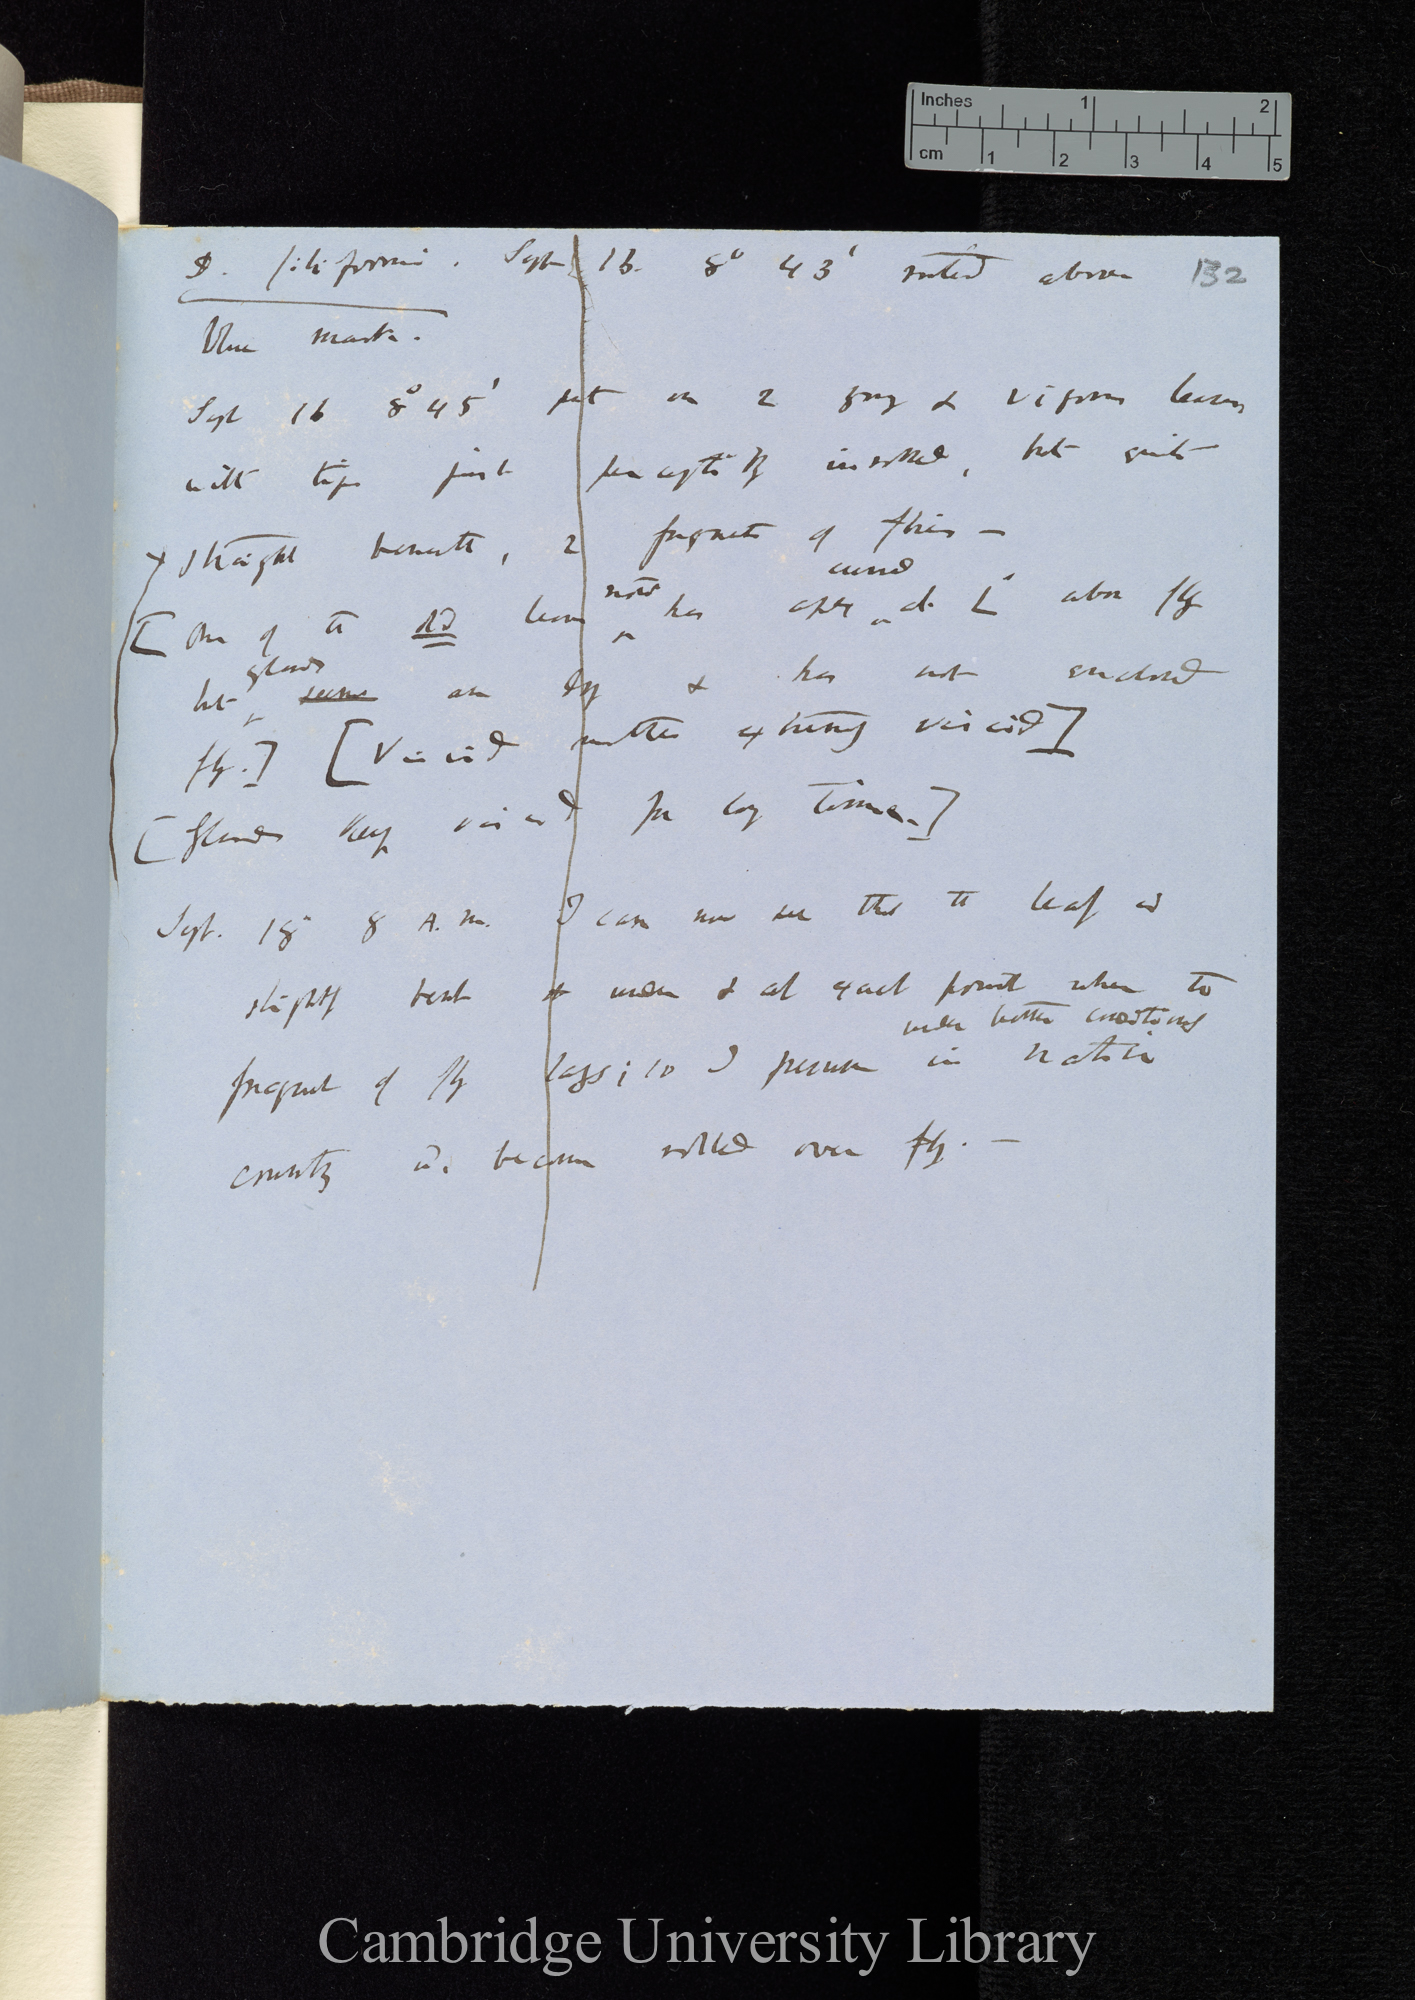 Inches 1 2
cm 1 2 3 4 5
D. filiformis. Sept 16. 8° 43' noted above 132
blue mark.
Sept 16 8° 45' put on 2 young & vigorous leaves
with tips just perceptibly inrolled, but quite
straight beneath, 2 fragments of flies —
[One of the old leaves noted has apex curved at L above fly
but glands seems are dry & has not enclosed
fly.] [Viscid matter extremely viscid]
[Glands keep viscid for long time.]
Sept. 18" 8 A.m. I can now see that the leaf is
slightly bent under & at exact point where the
fragment of fly lays; so I presume in under better conditions native
country wd. become rolled over fly. —
Cambridge University Library